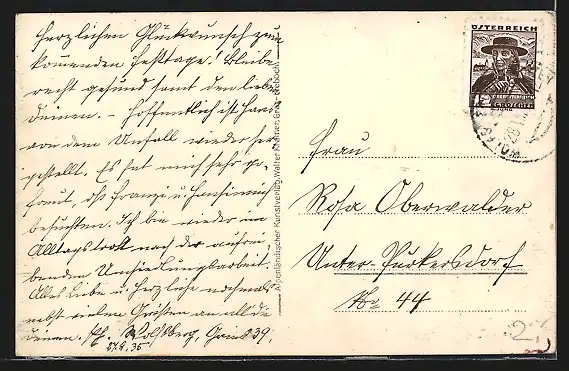 Herzlichen Glückwunsch zum
kommenden Festtage! Bleibe
recht gesund samt den lieben
Deinen. - Hoffentlich ist Hansi
von dem Unfall wieder her-
gestellt. Es hat mich sehr ge-
freut, dß Franzi u. Hansi mich
besuchten. Ich bin wieder im
Alltagstrott nach der aufrei-
benden Umsiedlungsarbeit.
Alles Liebe u. Herzliche nochmals
nebst vielen Grüßen an all die
Deinen. Wolfsberg, 39.
27.8.35
Alpenländischer Kunstverlag Walter Kramer, Graz
ÖSTERREICH
GROSCHEN
Frau
Rosa Oberwalder
Unter-Purkersdorf
No 44
2,-